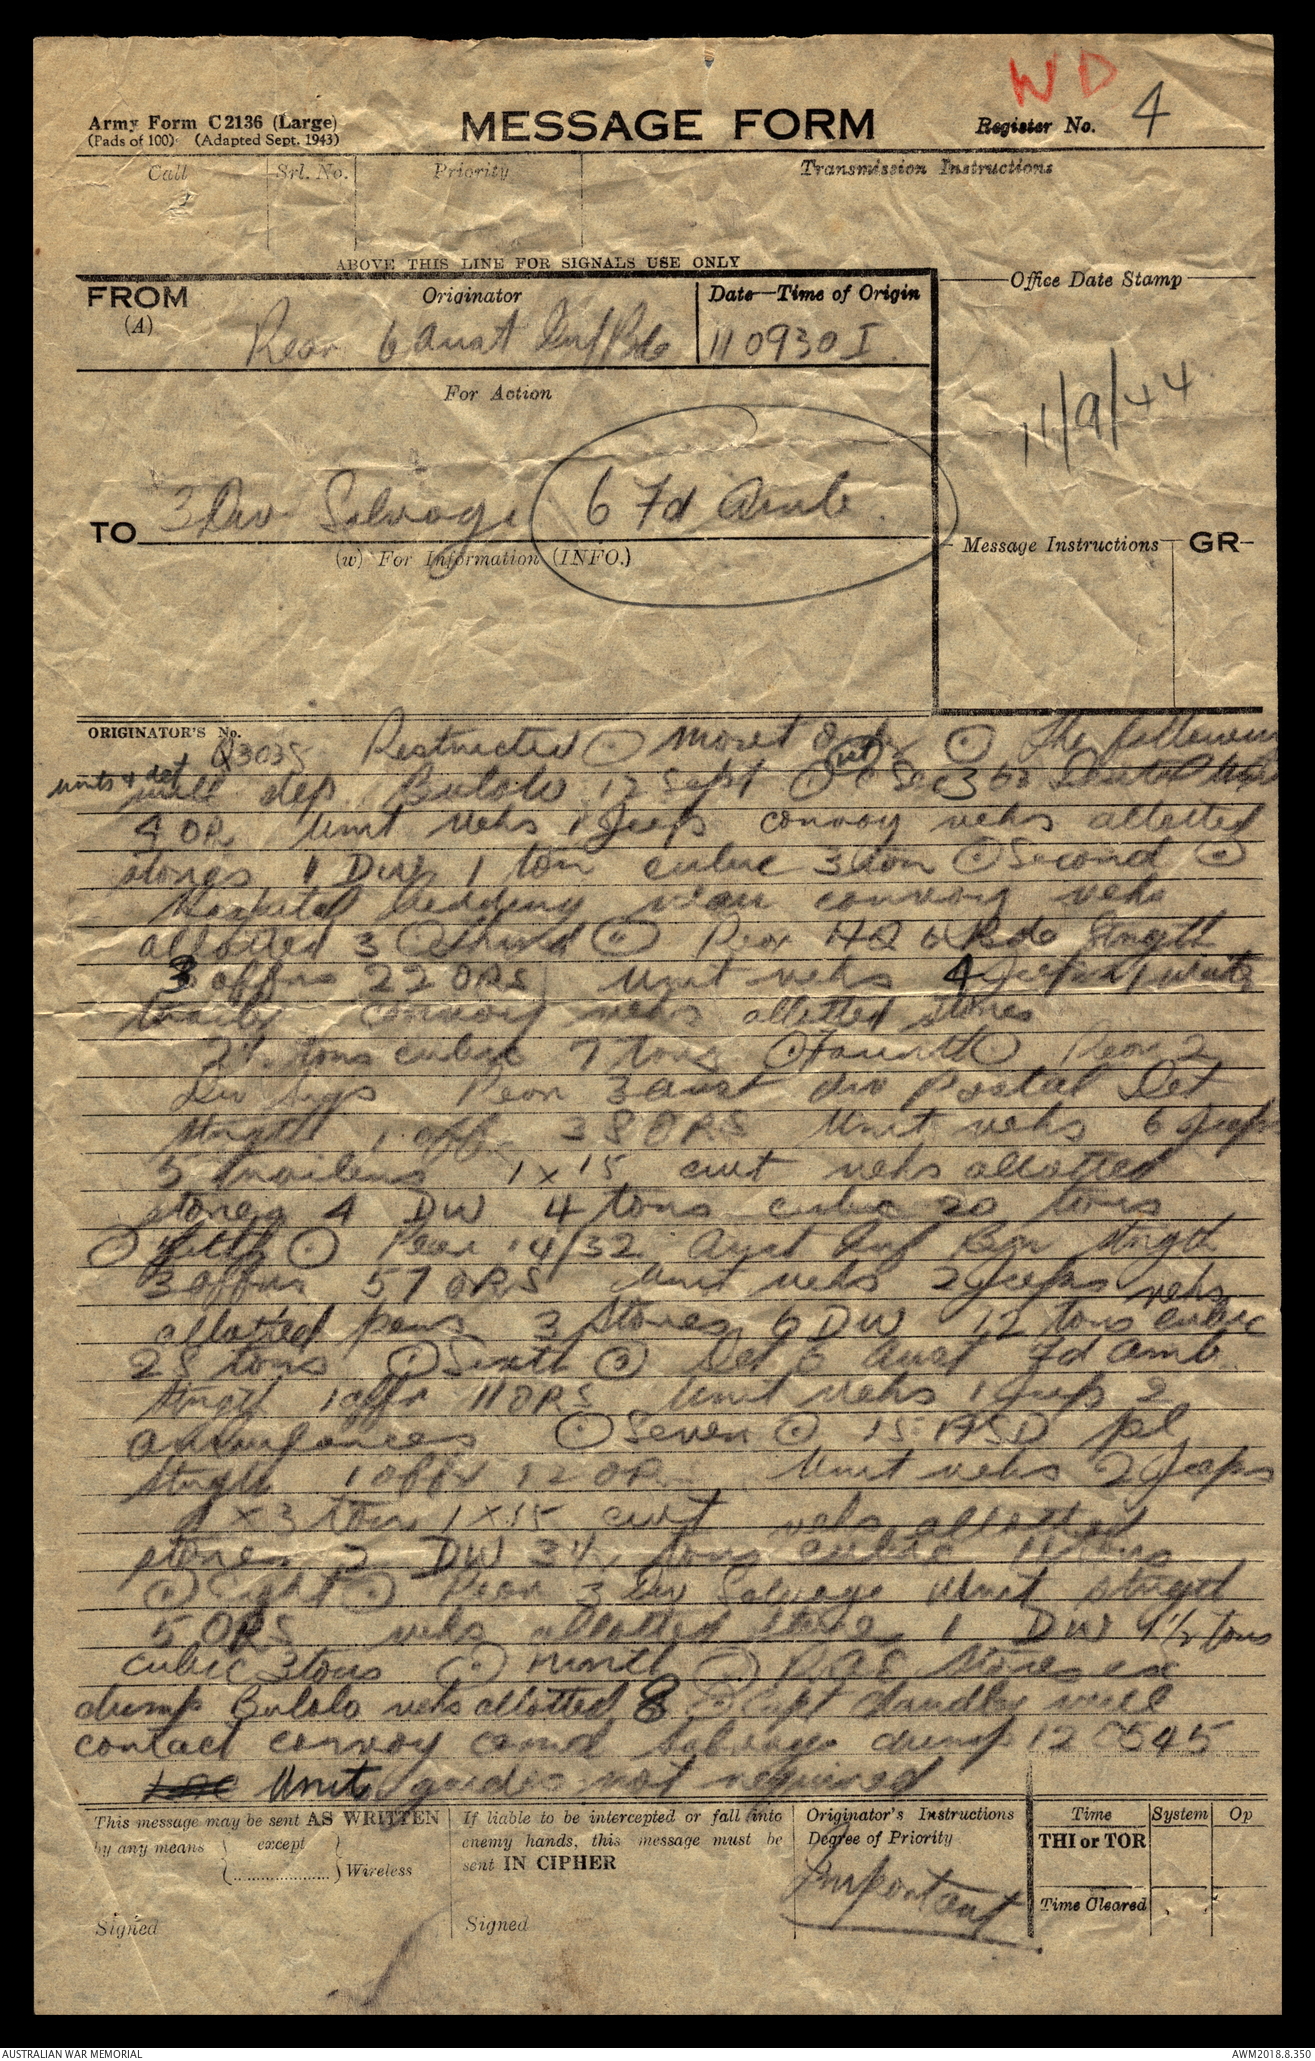 WD
Army Form C2136 (Large)
(Pads of 100) (Adapted Sept. 1943)
MESSAGE FORM
Register No. 4
Call
Srl. No.
Priority
Transmission Instructions
ABOVE THIS LINE FOR SIGNALS USE ONLY
FROM
(A)
Originator
Rear 6 Aust Inf Bde
Date—Time of Origin
110930 I
Office Date Stamp
11/9/44
For Action
TO
3 Div Salvage 6 Fd Amb.
(w) For Information (INFO.)
Message Instructions
GR
ORIGINATOR'S No.
Q3035 Restricted ⊙ ⊙ The following
units & det
will dep Bulolo 12 Sept ⊙
4 OR Unit vehs 1 Jeep convoy vehs allotted
stores 1 DW 1 ton cubic 3 ton ⊙ Second ⊙
Hospital convoy vehs
allotted 3 ⊙ third ⊙ Rear HQ 6 Bde Strngth
3 offrs 22 ORS Unit vehs 4
convoy vehs allotted stores
2½ tons cubic 7 tons ⊙ Fourth ⊙ Rear 2
Div Sigs Rear 3 Aust div Postal Det
strngth 1 offr 38 ORS Unit vehs 6 Jeeps
5 trailers 1 x 15 cwt vehs allotted
stores 4 DW 4 tons cubic 20 tons
⊙ fifth ⊙ Rear 14/32 Aust Inf Bn strngth
3 offrs 57 ORS Unit vehs 2 Jeeps vehs
allotted pers 3 Stores 6 DW 12 tons cubic
28 tons ⊙ Sixth ⊙ Det 6 Aust Fd Amb.
strngth 1 offr 11 ORS Unit vehs 1 Jeep 2
ambulances ⊙ Seven ⊙ 15 pl
strngth 1 offr 12 OR Unit vehs 2 Jeeps
1 x 3 ton 1 x 15 cwt vehs allotted
stores 2 DW 3½ tons cubic 11 tons
⊙ Eight ⊙ Rear 3 Div Salvage Unit strngth
5 ORS vehs allotted stores 1 DW 1½ tons
cubic 3 tons ⊙ ninth ⊙ stores ex
dump Bulolo vehs allotted 8 ⊙ Capt will
contact convoy comd Salvage dump 120545
Unit guides not required
This message may be sent AS WRITTEN
by any means except
Wireless
Signed
If liable to be intercepted or fall into
enemy hands, this message must be
sent IN CIPHER
Signed
Originator's Instructions
Degree of Priority
Important
Time
System
Op
THI or TOR
Time Cleared
AUSTRALIAN WAR MEMORIAL
AWM2018.8.350